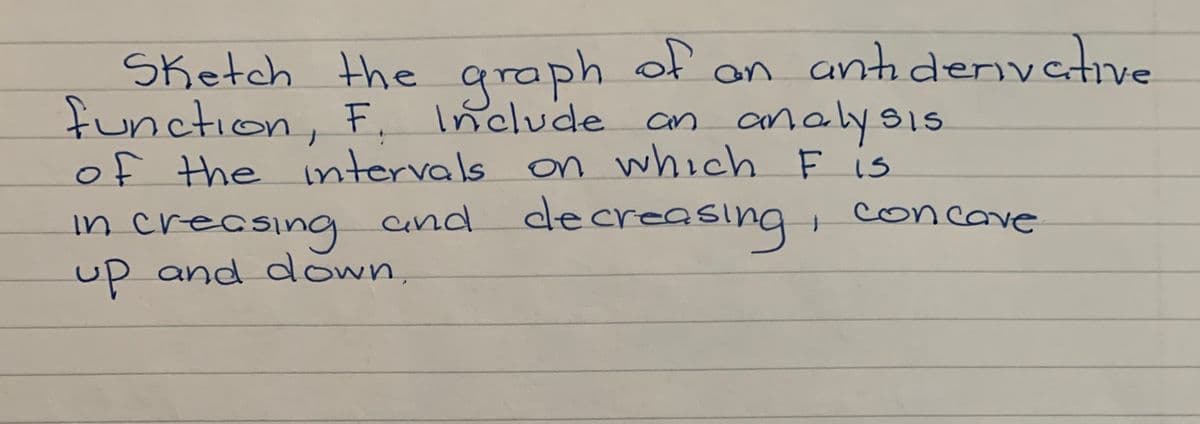 Sketch the graph of an antiderivative
function, F. Include an analysis
of the intervals on which F is
increasing and decreasing, concave
up and down.